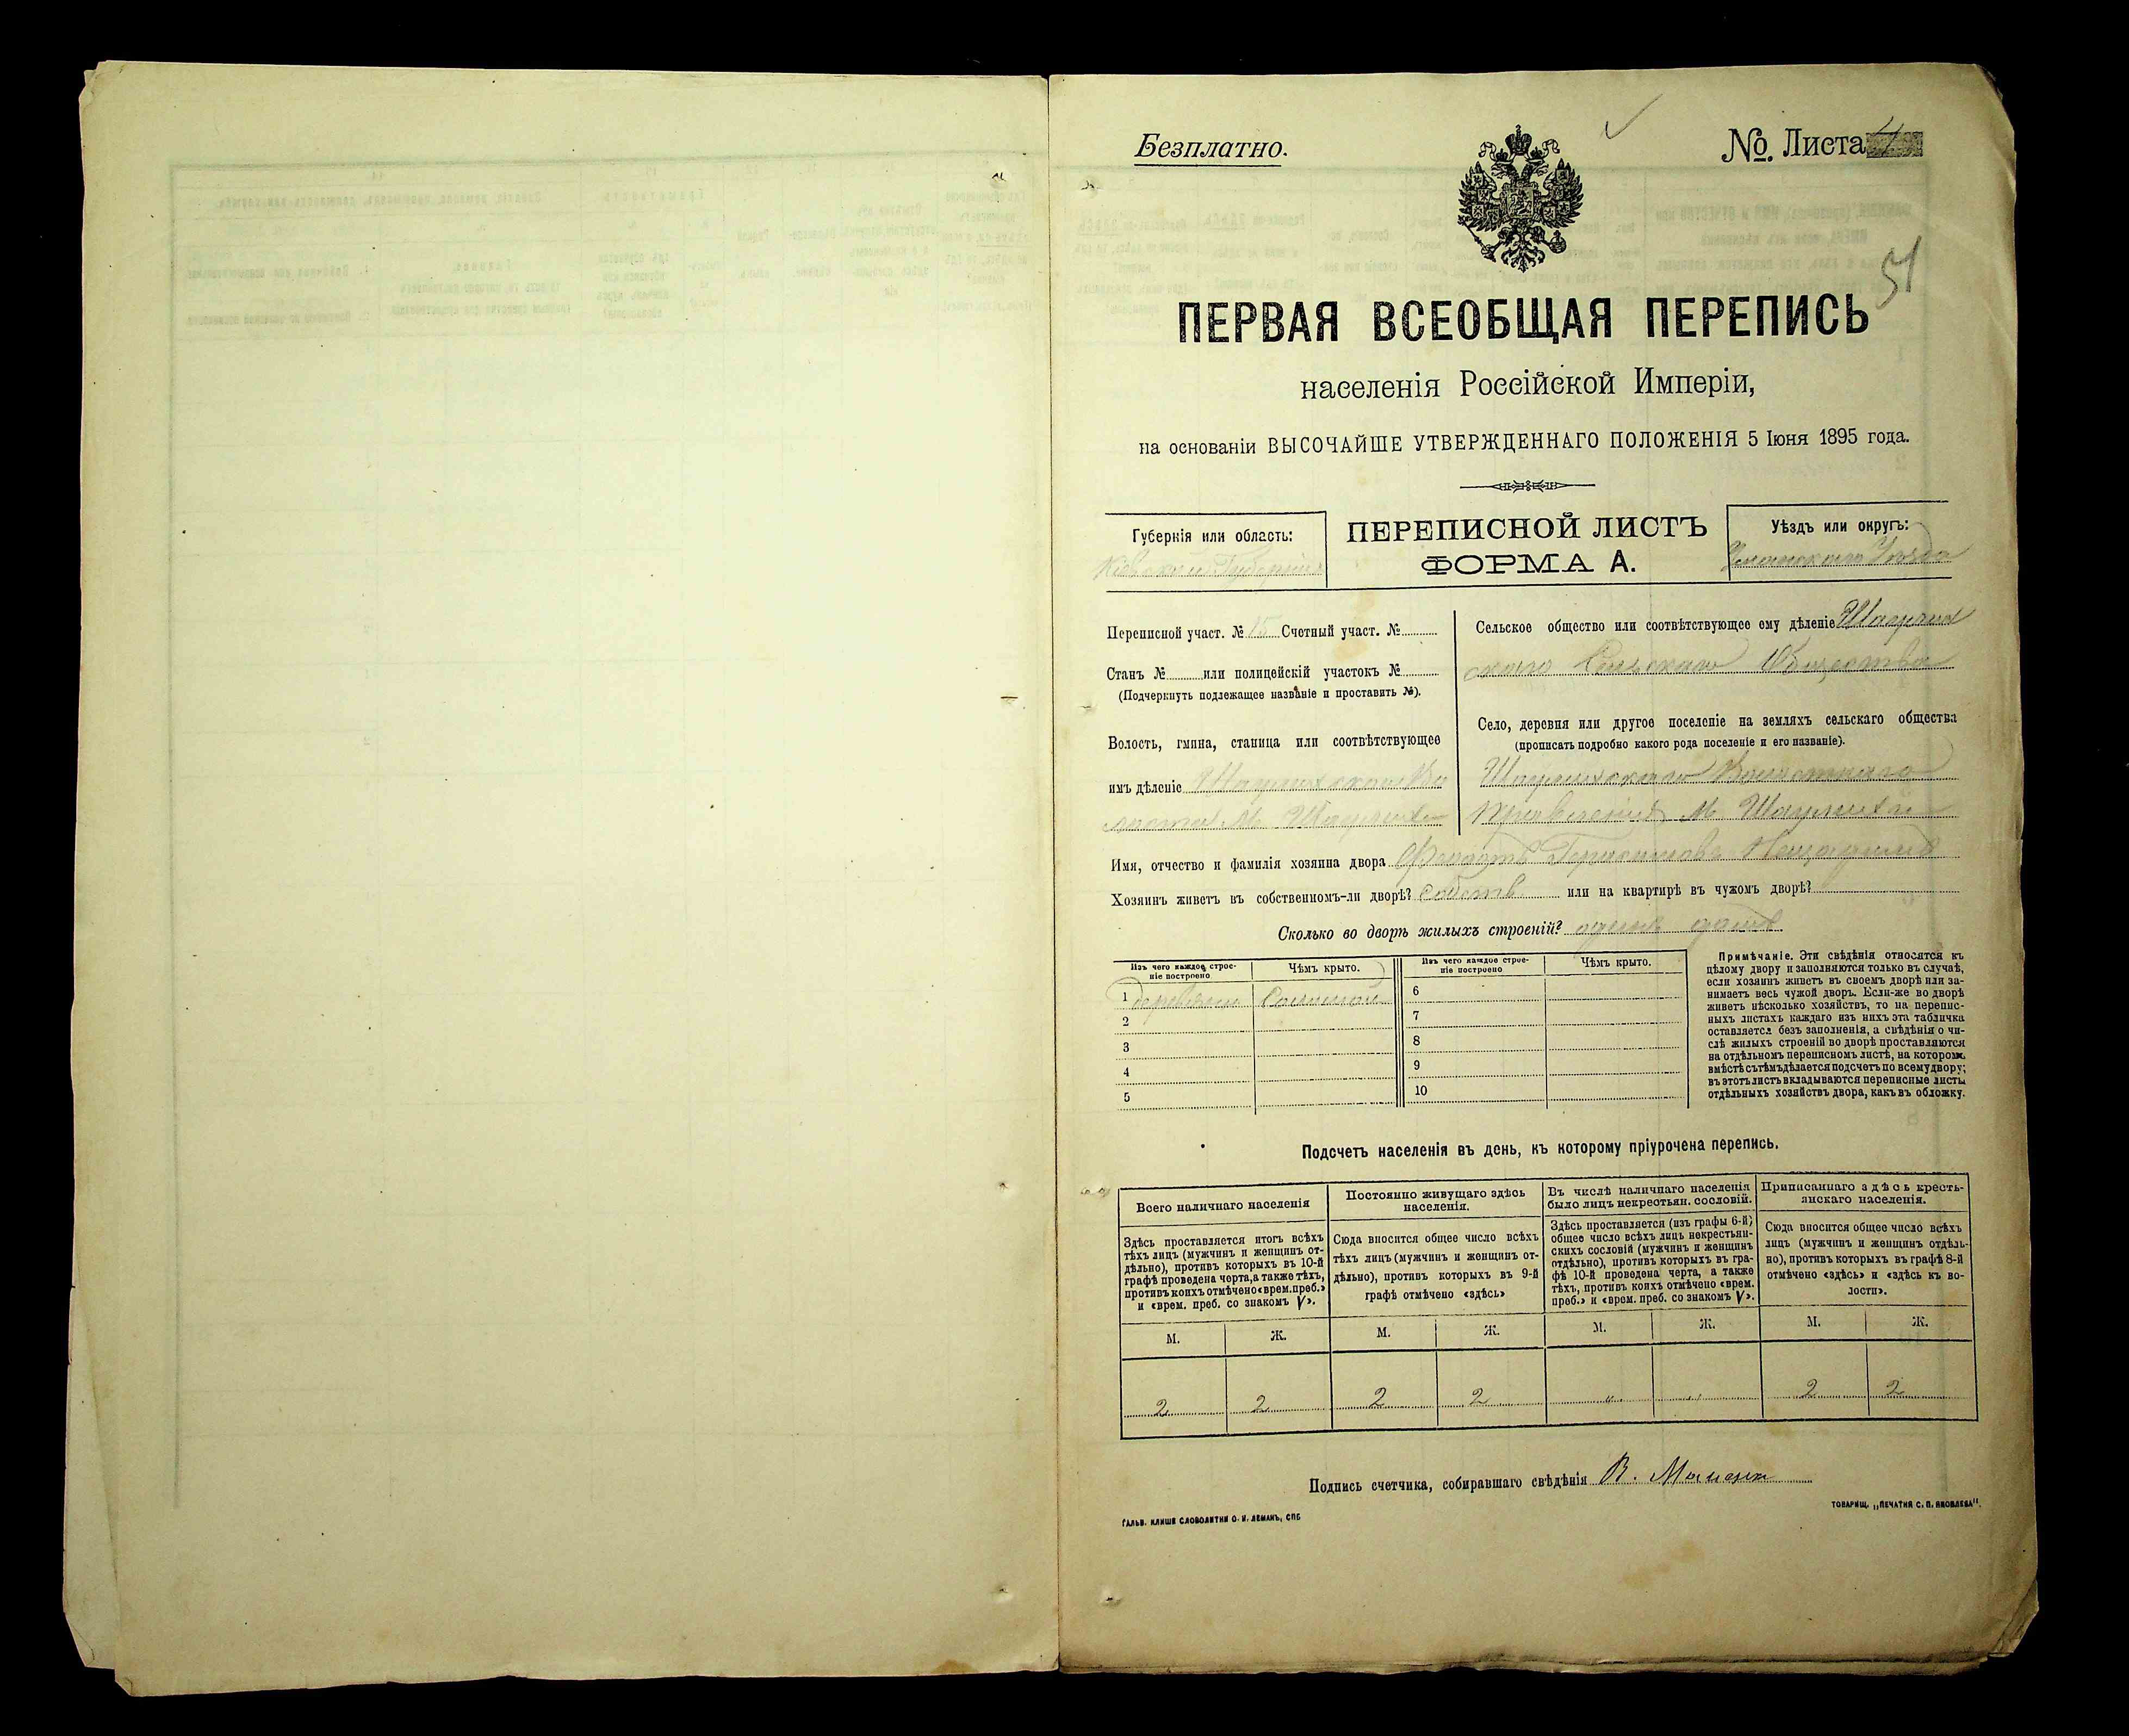 Безплатно.
№. Листа 4
51
ПЕРВАЯ ВСЕОБЩАЯ ПЕРЕПИСЬ
населенія Россійской Имперіи,
на основаніи ВЫСОЧАЙШЕ УТВЕРЖДЕННАГО ПОЛОЖЕНІЯ 5 Іюня 1895 года.
Губернія или область:
Кіевской Губерніи
ПЕРЕПИСНОЙ ЛИСТЪ
ФОРМА А.
Уѣздъ или округъ:
Уманскаго Уѣзда
Переписной участ. № 15 Счетный участ. №
Станъ № или полицейскій участокъ №
(Подчеркнуть подлежащее названіе и проставить №).
Волость, гмина, станица или соотвѣтствующее
имъ дѣленіе Шаулихской Во
лости М. Шаулиха
Сельское общество или соотвѣтствующее ему дѣленіе Шаулих
скаго Сельскаго Общества
Село, деревня или другое поселеніе на земляхъ сельскаго общества
(прописать подробно какого рода поселеніе и его названіе).
Шаулихскаго Волостнаго
Правленія М. Шаулиха
Имя, отчество и фамилія хозяина двора
Хозяинъ живетъ въ собственномъ-ли дворѣ? собств. или на квартирѣ въ чужомъ дворѣ?
Сколько во дворѣ жилыхъ строеній? одинъ домъ
Изъ чего каждое строе-
ніе построено
Чѣмъ крыто.
Изъ чего каждое строе-
ніе построено
Чѣмъ крыто.
1 деревянно Соломой
2
3
4
5
6
7
8
9
10
Примѣчаніе. Эти свѣдѣнія относятся къ
цѣлому двору и заполняются только въ случаѣ,
если хозяинъ живетъ въ своемъ дворѣ или за-
нимаетъ весь чужой дворъ. Если-же во дворѣ
живетъ нѣсколько хозяйствъ, то на перепис-
ныхъ листахъ каждаго изъ нихъ эта табличка
оставляется безъ заполненія, а свѣдѣнія о чи-
слѣ жилыхъ строеній во дворѣ проставляются
на отдѣльномъ переписномъ листѣ, на которомъ
вмѣстѣ съ тѣмъ дѣлается подсчетъ по всему двору;
въ этотъ листъ вкладываются переписные листы
отдѣльныхъ хозяйствъ двора, какъ въ обложку.
Подсчетъ населенія въ день, къ которому пріурочена перепись.
Всего наличнаго населенія
Здѣсь проставляется итогъ всѣхъ
тѣхъ лицъ (мужчинъ и женщинъ от-
дѣльно), противъ которыхъ въ 10-й
графѣ проведена черта, а также тѣхъ,
противъ коихъ отмѣчено «врем. преб.»
и «врем. преб. со знакомъ V».
Постоянно живущаго здѣсь
населенія.
Сюда вносится общее число всѣхъ
тѣхъ лицъ (мужчинъ и женщинъ от-
дѣльно), противъ которыхъ въ 9-й
графѣ отмѣчено «здѣсь»
Въ числѣ наличнаго населенія
было лицъ некрестьян. сословій.
Здѣсь проставляется (изъ графы 6-й)
общее число всѣхъ лицъ некрестьян-
скихъ сословій (мужчинъ и женщинъ
отдѣльно), противъ которыхъ въ гра-
фѣ 10-й проведена черта, а также
тѣхъ, противъ коихъ отмѣчено «врем.
преб.» и «врем. преб. со знакомъ V».
Приписаннаго здѣсь кресть-
янскаго населенія.
Сюда вносится общее число всѣхъ
лицъ (мужчинъ и женщинъ отдѣль-
но), противъ которыхъ въ графѣ 8-й
отмѣчено «здѣсь» и «здѣсь къ во-
лости».
М. Ж. М. Ж. М. Ж. М. Ж.
2 2 2 2 „ „ 2 2
Подпись счетчика, собиравшаго свѣдѣнія В.
ГАЛЬВ. КЛИШЕ СЛОВОЛИТНИ О. И. ЛЕМАНЪ, СПБ
ТОВАРИЩ. „ПЕЧАТНЯ С. П. ЯКОВЛЕВА".